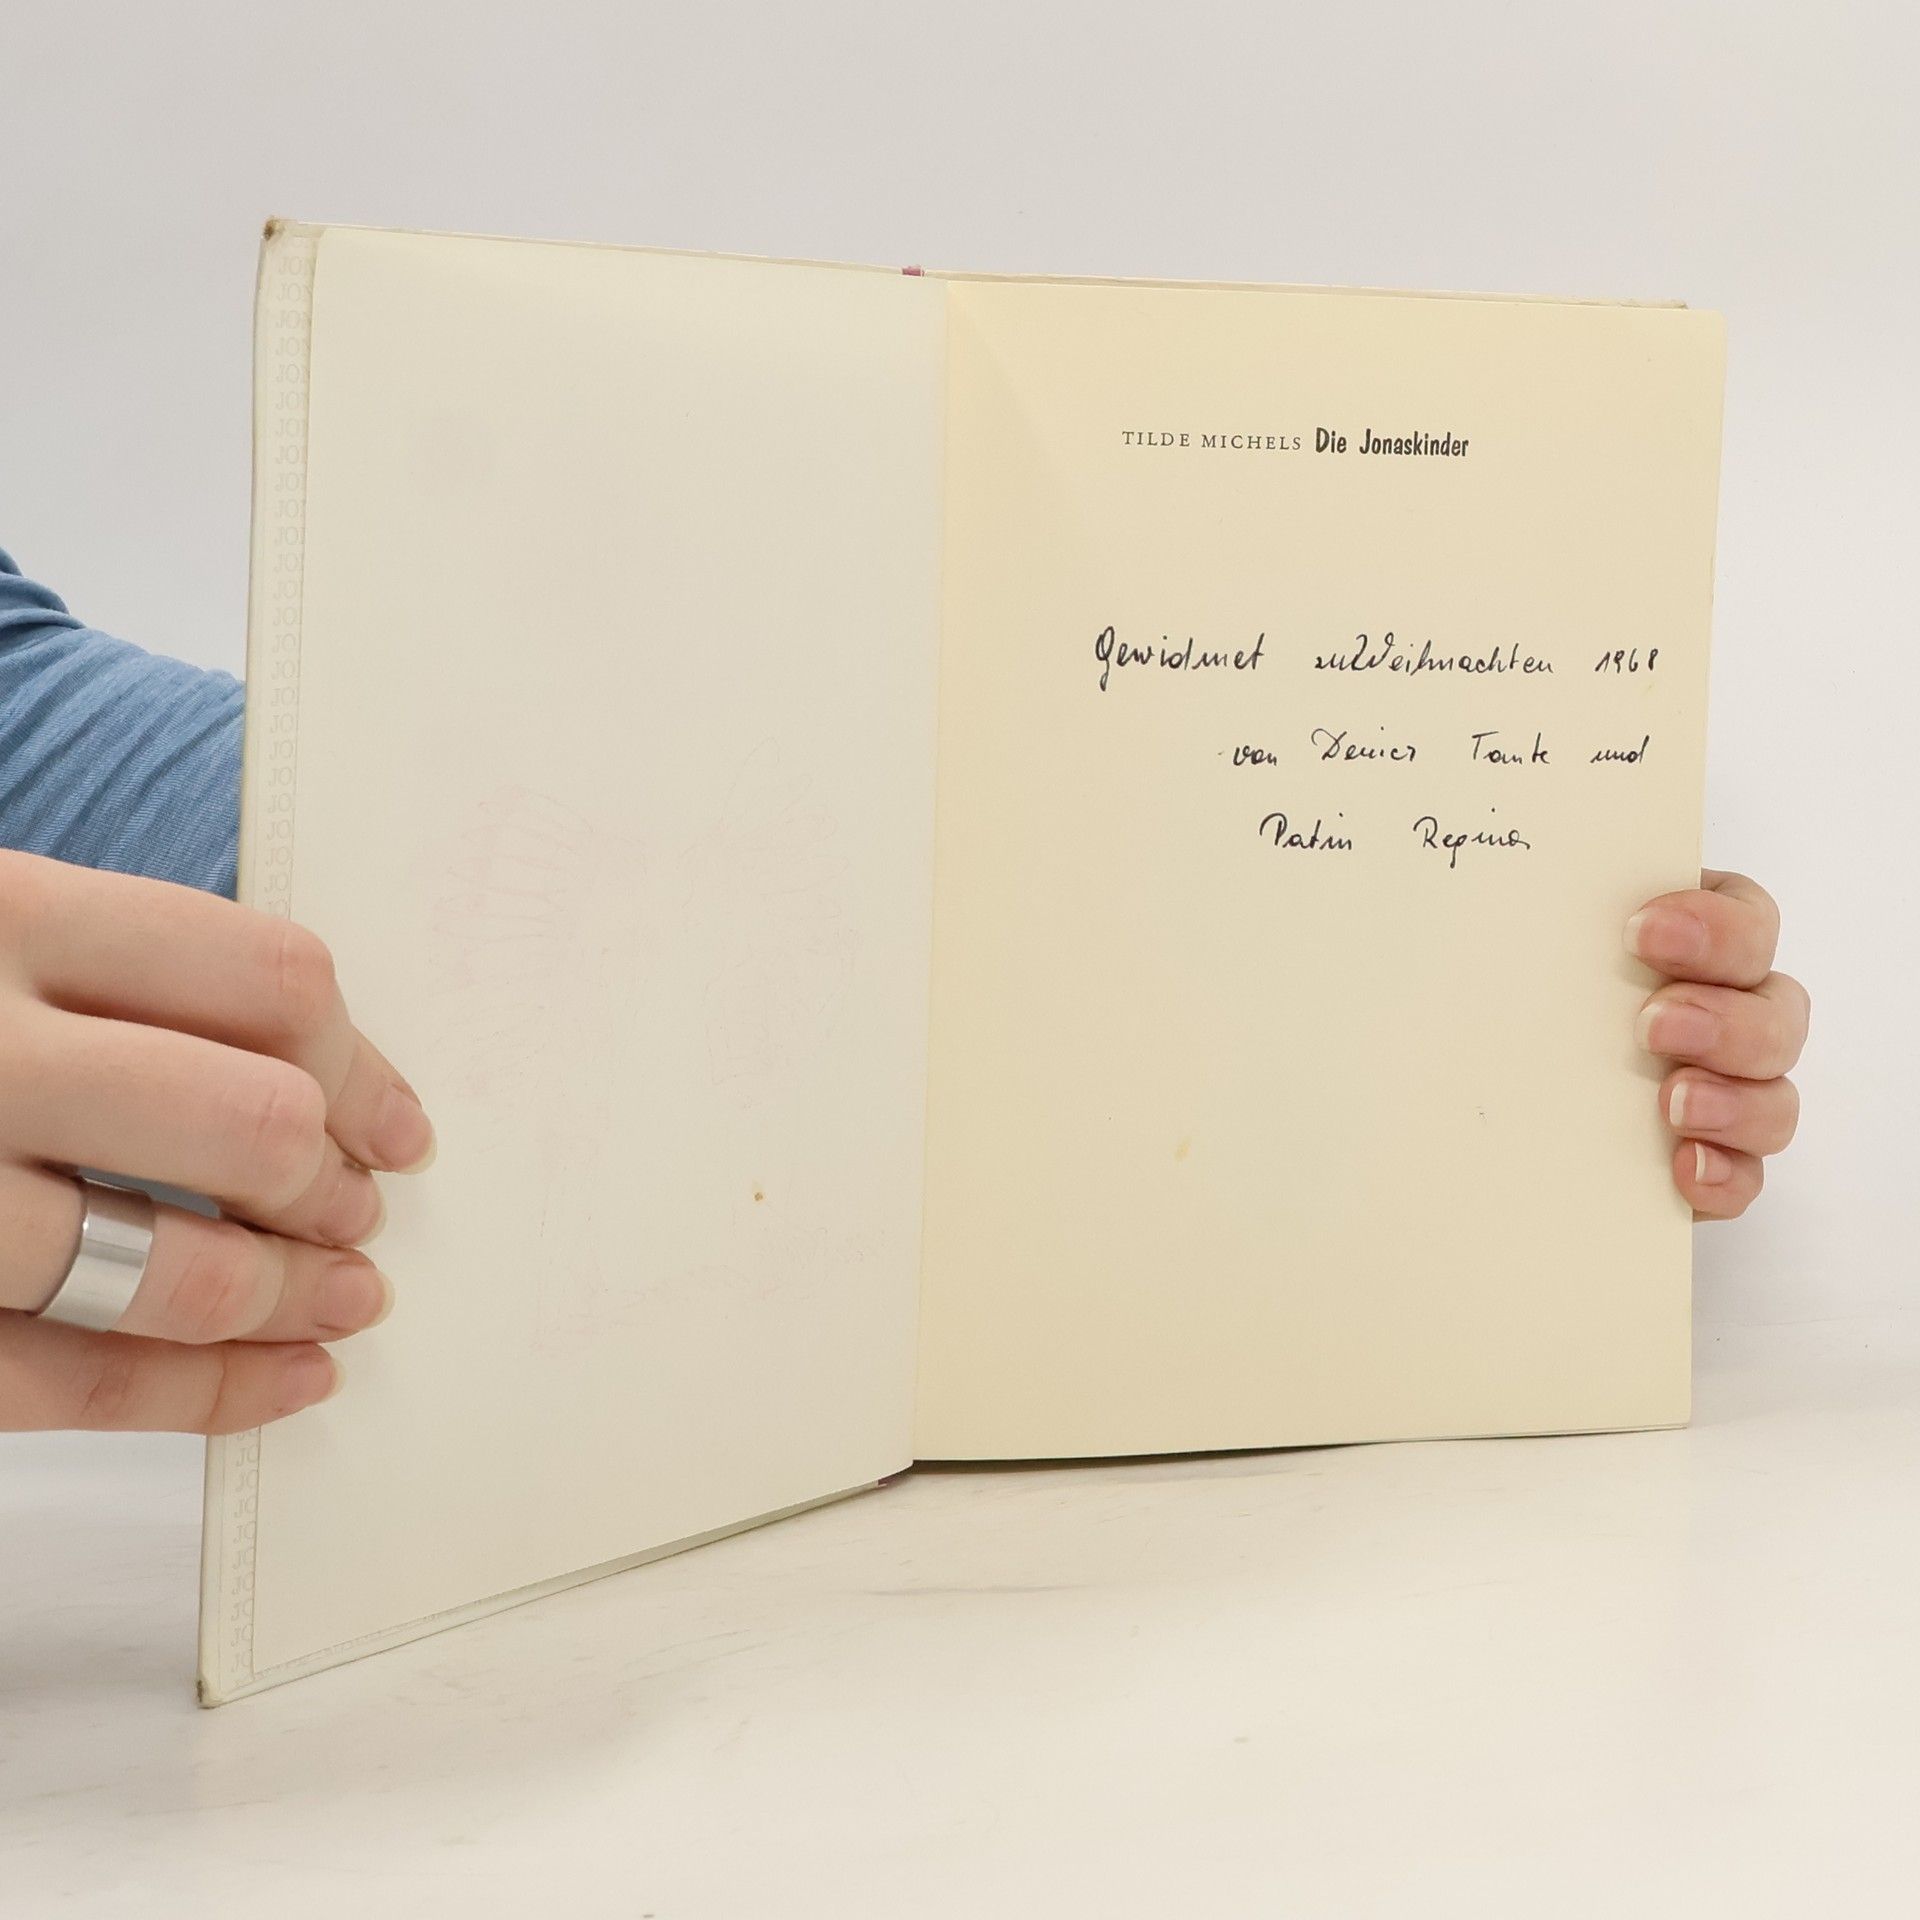 TILDE MICHELS Die Jonaskinder
Gewidmet zu Weihnachten 1968
von Deiner Tante und
Patin Regina